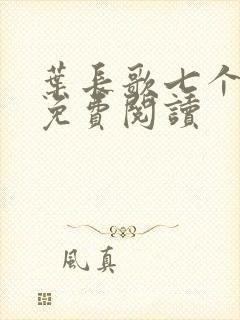 葉長歌七个
免費閱讀
風真